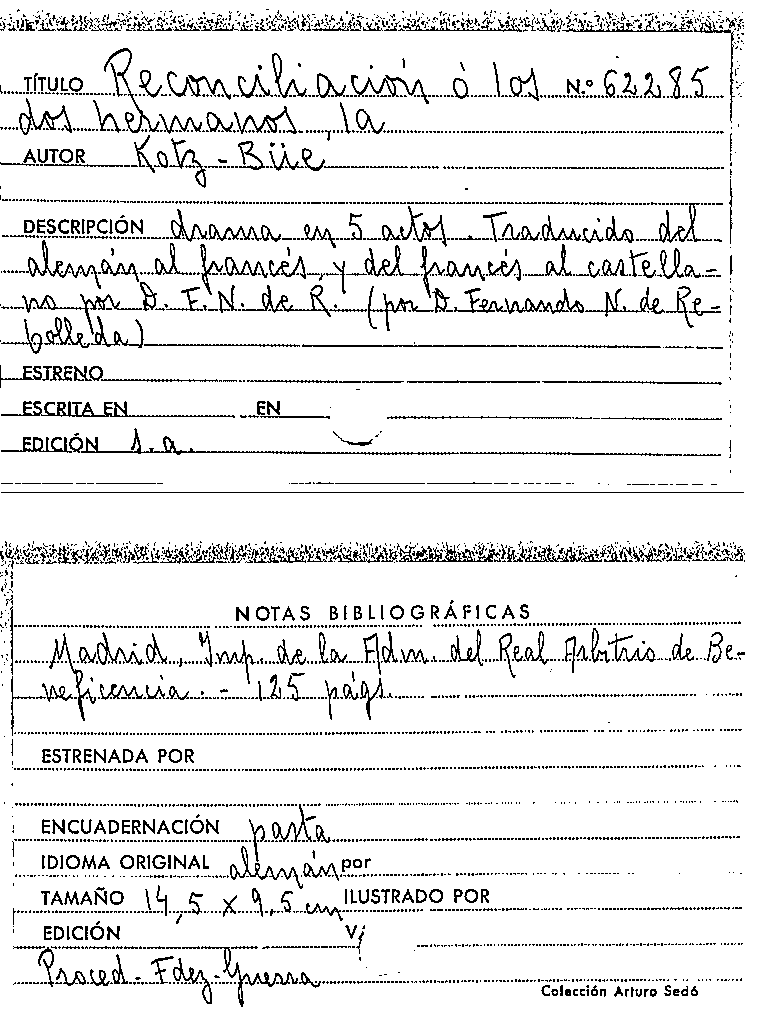 TÍTULO Reconciliación ó los N.º 62285
dos hermanos, la
AUTOR Kotz-Büe
DESCRIPCIÓN drama en 5 actos. Traducido del
alemán al francés, y del francés al castella-
no por D. F. N. de R. (por D. Fernando N. de Re-
bolleda)
ESTRENO
ESCRITA EN EN
EDICIÓN s.a.
NOTAS BIBLIOGRÁFICAS
Madrid, Imp. de la Adm. del Real Arbitrio de Be-
neficencia. - 125 págs.
ESTRENADA POR
ENCUADERNACIÓN pasta
IDIOMA ORIGINAL alemán por
TAMAÑO 14,5 x 9,5 cm ILUSTRADO POR
EDICIÓN V/
Proced. Fdez-Guerra
Colección Arturo Sedó